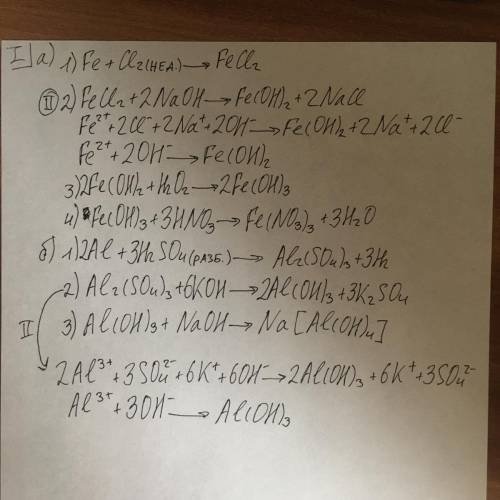 I а) 1) Fe + Cl₂ (НЕД.) → FeCl₂
II 2) FeCl₂ + 2NaOH → Fe(OH)₂ + 2NaCl
Fe²⁺ + 2Cl⁻ + 2Na⁺ + 2OH⁻ → Fe(OH)₂ + 2Na⁺ + 2Cl⁻
Fe²⁺ + 2OH⁻ → Fe(OH)₂
3) 2Fe(OH)₂ + H₂O₂ → 2Fe(OH)₃
4) Fe(OH)₃ + 3HNO₃ → Fe(NO₃)₃ + 3H₂O
б) 1) 2Al + 3H₂SO₄ (РАЗБ.) → Al₂(SO₄)₃ + 3H₂
2) Al₂(SO₄)₃ + 6KOH → 2Al(OH)₃ + 3K₂SO₄
II 3) Al(OH)₃ + NaOH → Na[Al(OH)₄]
2Al³⁺ + 3SO₄²⁻ + 6K⁺ + 6OH⁻ → 2Al(OH)₃ + 6K⁺ + 3SO₄²⁻
Al³⁺ + 3OH⁻ → Al(OH)₃